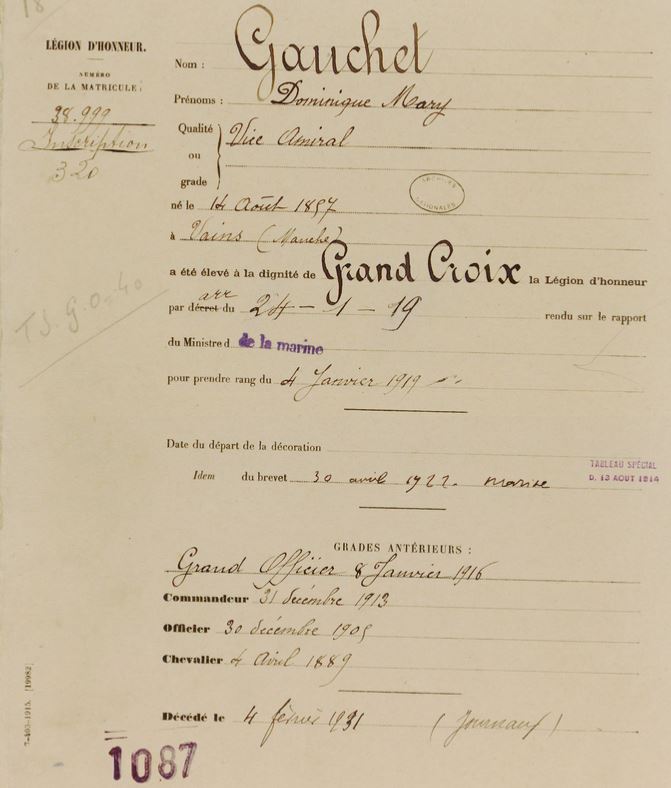 18
LÉGION D'HONNEUR.
NUMÉRO
DE LA MATRICULE:
38.999
Inscription
320
T.S. G.O. 40
Nom : Gauchet
Prénoms : Dominique Mary
Qualité Vice Amiral
ou
grade
ARCHIVES NATIONALES
né le 14 Août 1857
à Vains (Manche)
a été élevé à la dignité de Grand Croix la Légion d'honneur
par décret arr du 24 - 1 - 19 rendu sur le rapport
du Ministre d de la marine
pour prendre rang du 4 Janvier 1919
Date du départ de la décoration
TABLEAU SPÉCIAL
D. 13 AOUT 1914
Idem du brevet 30 avril 1922. marine
GRADES ANTÉRIEURS :
Grand Officier 8 Janvier 1916
Commandeur 31 décembre 1913
Officier 30 décembre 1905
Chevalier 4 Avril 1889
Décédé le 4 février 1931 (Journaux)
7-405-1915. [19982]
1087